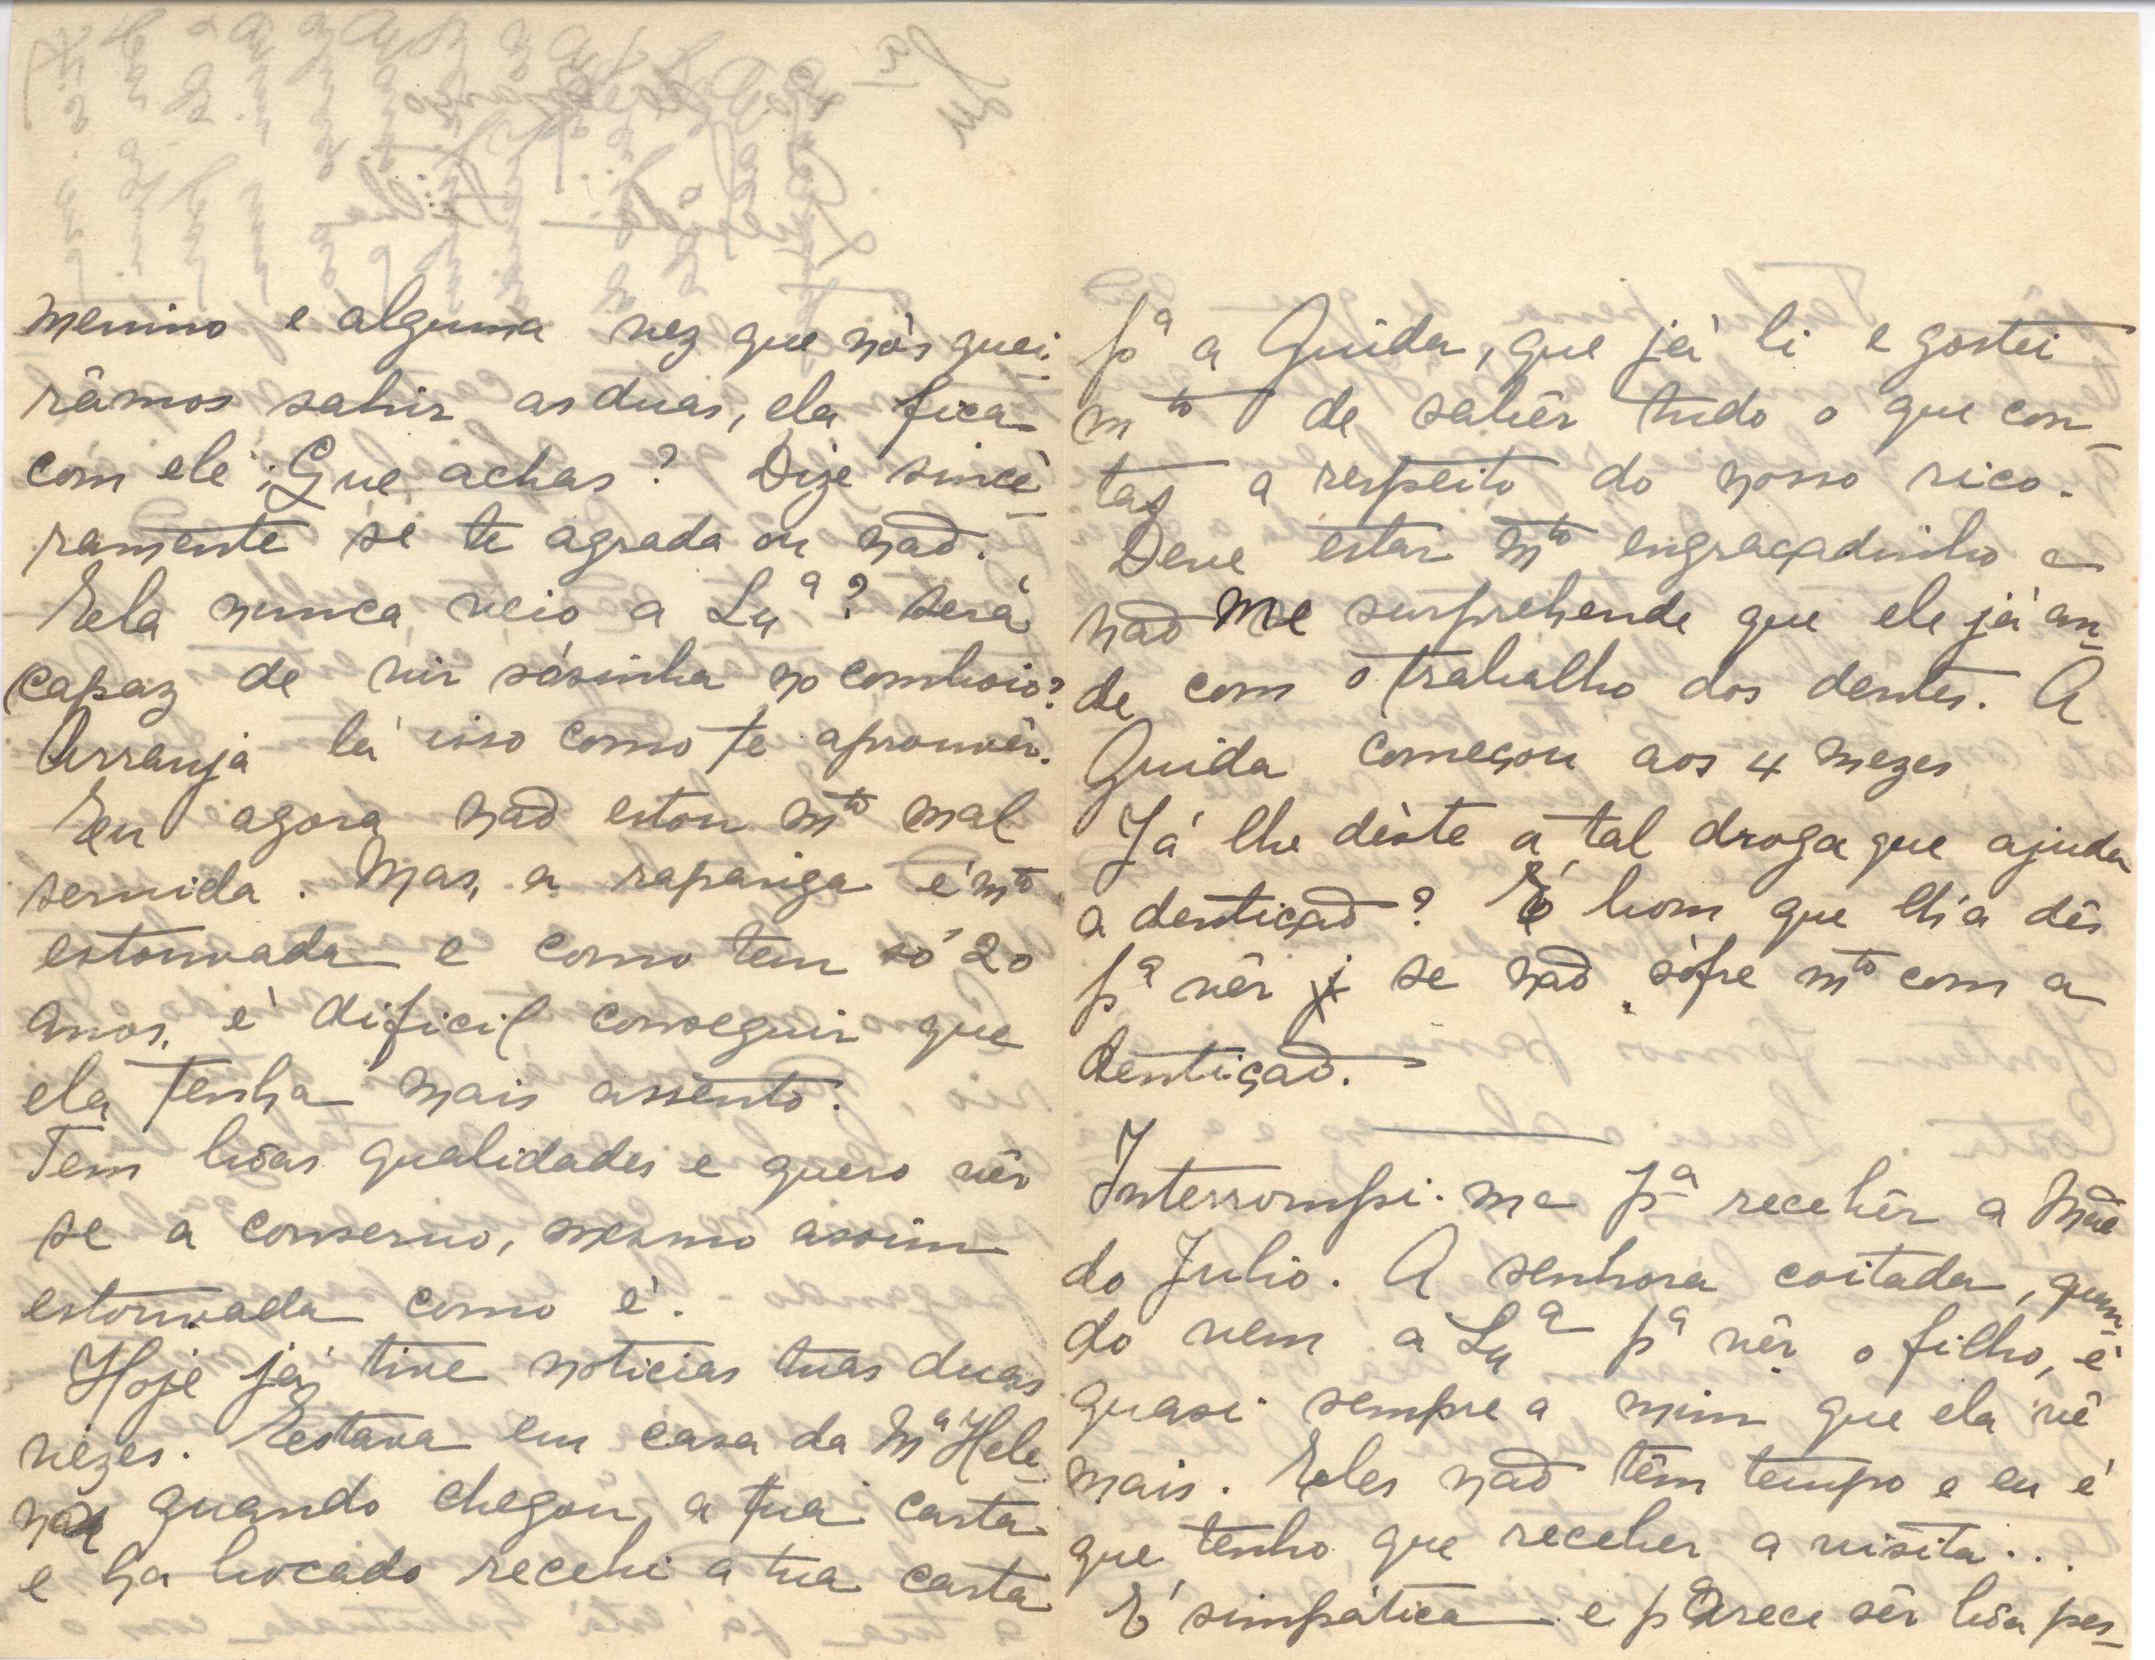 menino e alguma vez que nós quei-
râmos sahir as duas, ela fica
com ele. Que achas? Dize sincé-
ramente se te agrada ou não.
Ela nunca veio a Luª? Será
capaz de vir sósinha no comboio?
Arranja lá isso como te aprouvér.
Eu agora não estou mto mal
servida. Mas, a rapariga é mto
estouvada e como tem só 20
anos, é dificil conseguir que
ela tenha mais assento.
Tem bôas qualidades e quero vêr
se a conservo, mesmo assim
estouvada como é.
Hoje já tive noticias tuas duas
vezes. Estava em casa da Mª Hele-
na quando chegou a tua carta
e ha bocado recebi a tua carta
pª a Guida, que já li e gostei
mto de sabêr tudo o que con-
tas a respeito do nosso rico.
Deve estar mto engraçadinho e
não me surprehende que ele já an-
de com o trabalho dos dentes. A
Guida começou aos 4 mezes
Já lhe déste a tal droga que ajuda
a dentição? É bom que lh'a dês
pª vêr se não sófre mto com a
dentição.
Interrompi-me pª recebêr a Mãe
do Julio. A senhora coitada, quan-
do vem a Luª pª vêr o filho, é
quasi sempre a mim que ela vê
mais. Eles não têm tempo e eu é
que tenho que receber a visita...
É simpática e parece sêr bôa pes-